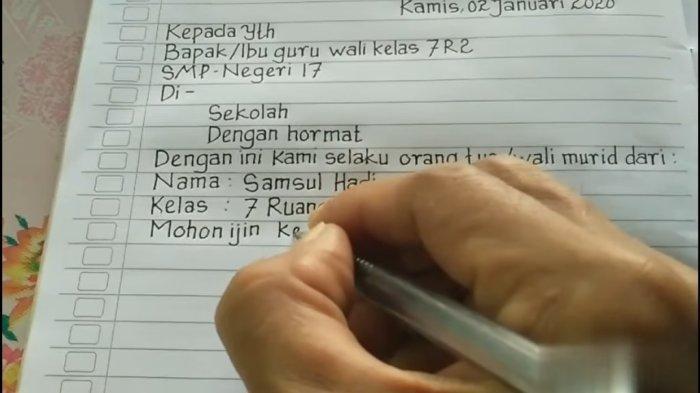 Kamis, 02 Januari 2020
Kepada Yth
Bapak/Ibu guru wali kelas 7R2
SMP-Negeri 17
Di-
Sekolah
Dengan hormat
Dengan ini kami selaku orang tua/wali murid dari :
Nama : Samsul Hadi
Kelas : 7 Ruang
Mohon ijin ke